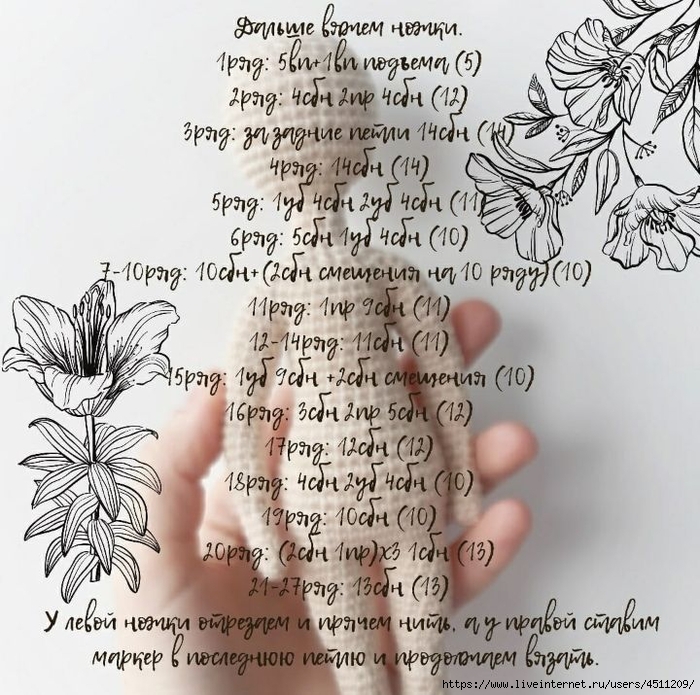 Дальше вяжем ножки.
1ряд: 5вп+1вп подъема (5)
2ряд: 4сбн 2пр 4сбн (12)
3ряд: за задние петли 14сбн (14)
4ряд: 14сбн (14)
5ряд: 1уб 4сбн 2уб 4сбн (11)
6ряд: 5сбн 1уб 4сбн (10)
7-10ряд: 10сбн+(2сбн смещения на 10 ряду)(10)
11ряд: 1пр 9сбн (11)
12-14ряд: 11сбн (11)
15ряд: 1уб 9сбн +2сбн смещения (10)
16ряд: 3сбн 2пр 5сбн (12)
17ряд: 12сбн (12)
18ряд: 4сбн 2уб 4сбн (10)
19ряд: 10сбн (10)
20ряд: (2сбн 1пр)х3 1сбн (13)
21-27ряд: 13сбн (13)
У левой ножки отрезаем и прячем нить, а у правой ставим
маркер в последнюю петлю и продолжаем вязать.
https://www.liveinternet.ru/users/4511209/